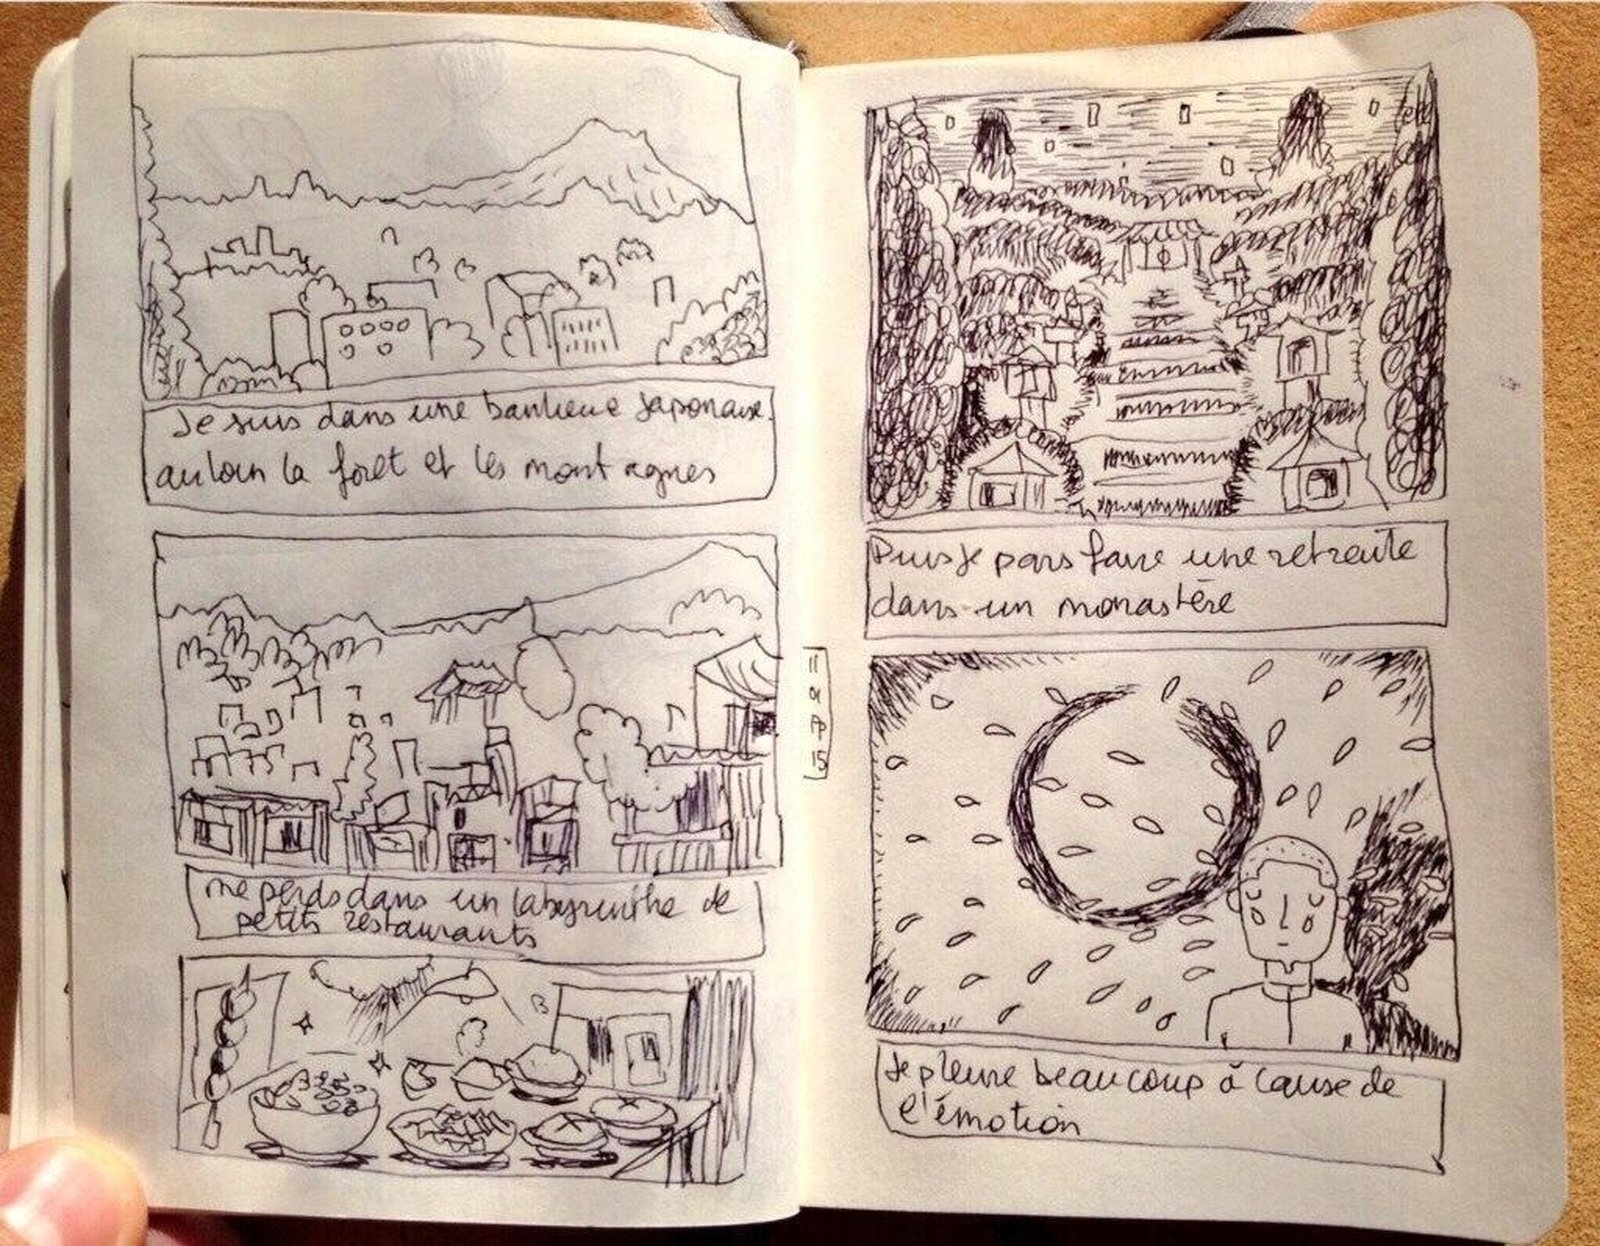 Je suis dans une banlieue Japonaise.
au loin la forêt et les montagnes
me perds dans un labyrinthe de
petits restaurants
Puis je pars faire une retraite
dans un monastère
Je pleure beaucoup à cause de
l'émotion
11
01
15